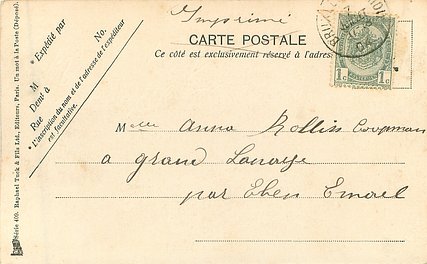 Imprimé
CARTE POSTALE
Ce côté est exclusivement réservé à l'adres
BRUX
1c 1c
* Expédié par
No.
M
Demt à
Rue
* L'inscription du nom et de l'adresse de l'expéditeur
est facultative.
Série 409. Raphael Tuck & Fils Ltd., Editeurs, Paris. Un mot à la Poste (Déposé).
Melle Anna Collin Coopman
a grand Lanaye
par Eben Emael